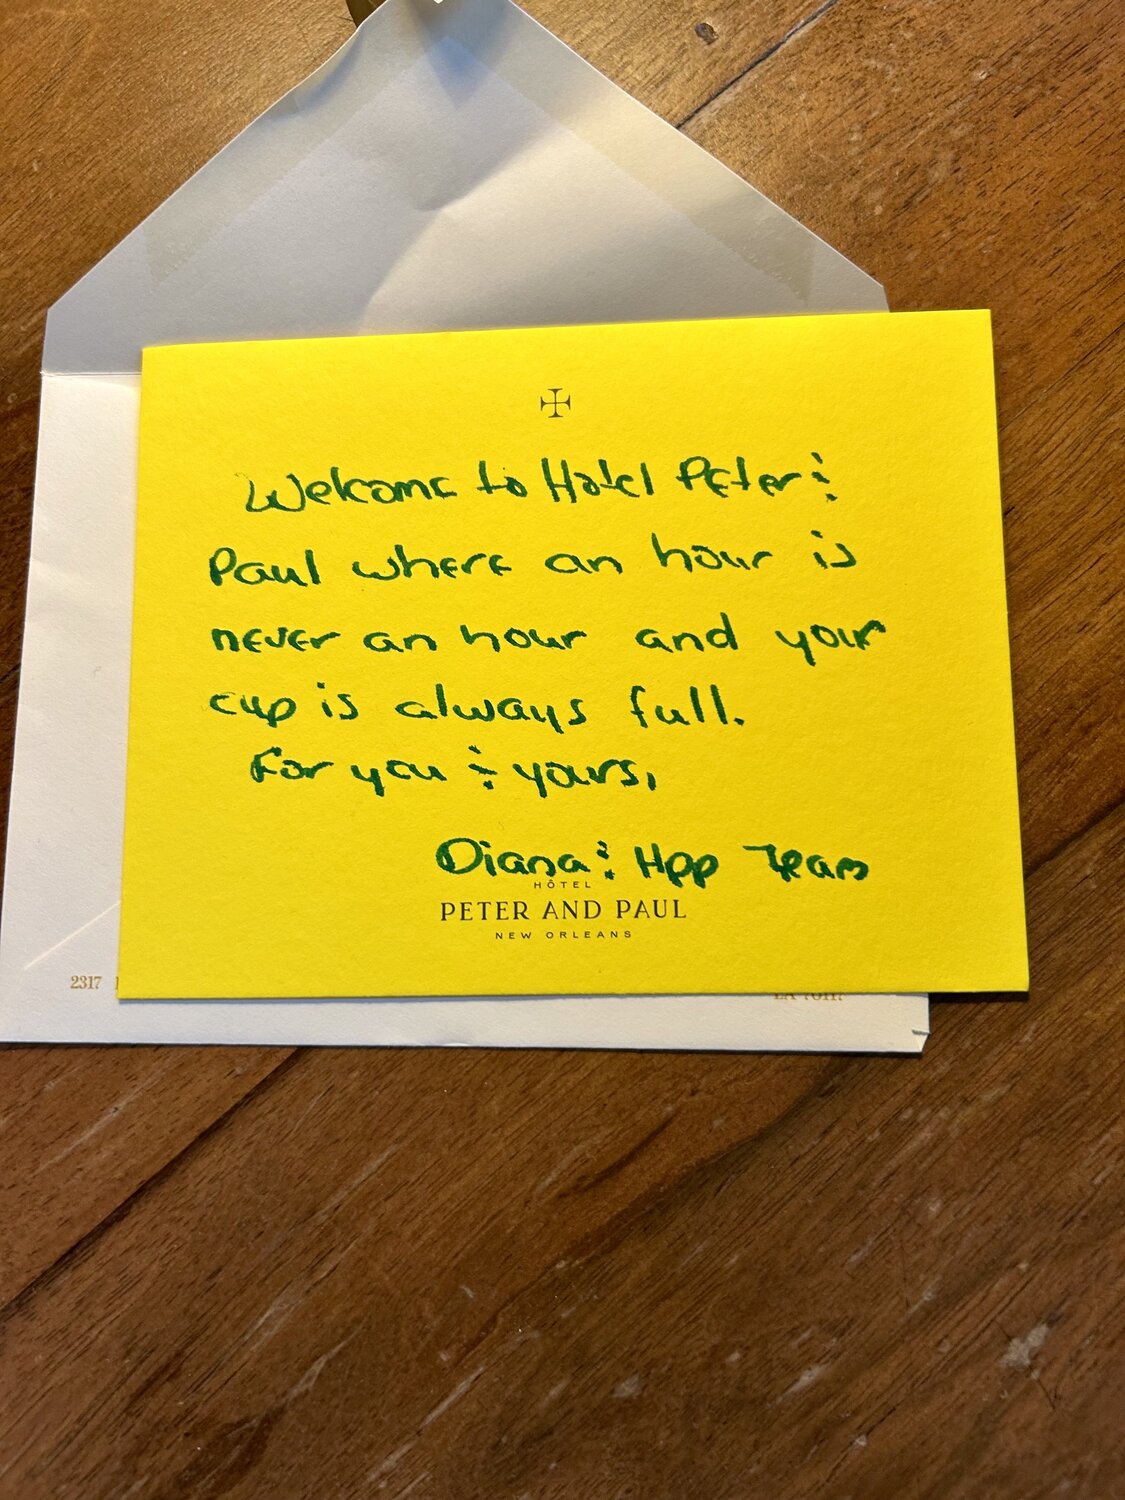 Welcome to Hotel Peter &
Paul where an hour is
never an hour and your
cup is always full.
For you & yours,
Diana & Hpp Team
HÔTEL
PETER AND PAUL
NEW ORLEANS
2317